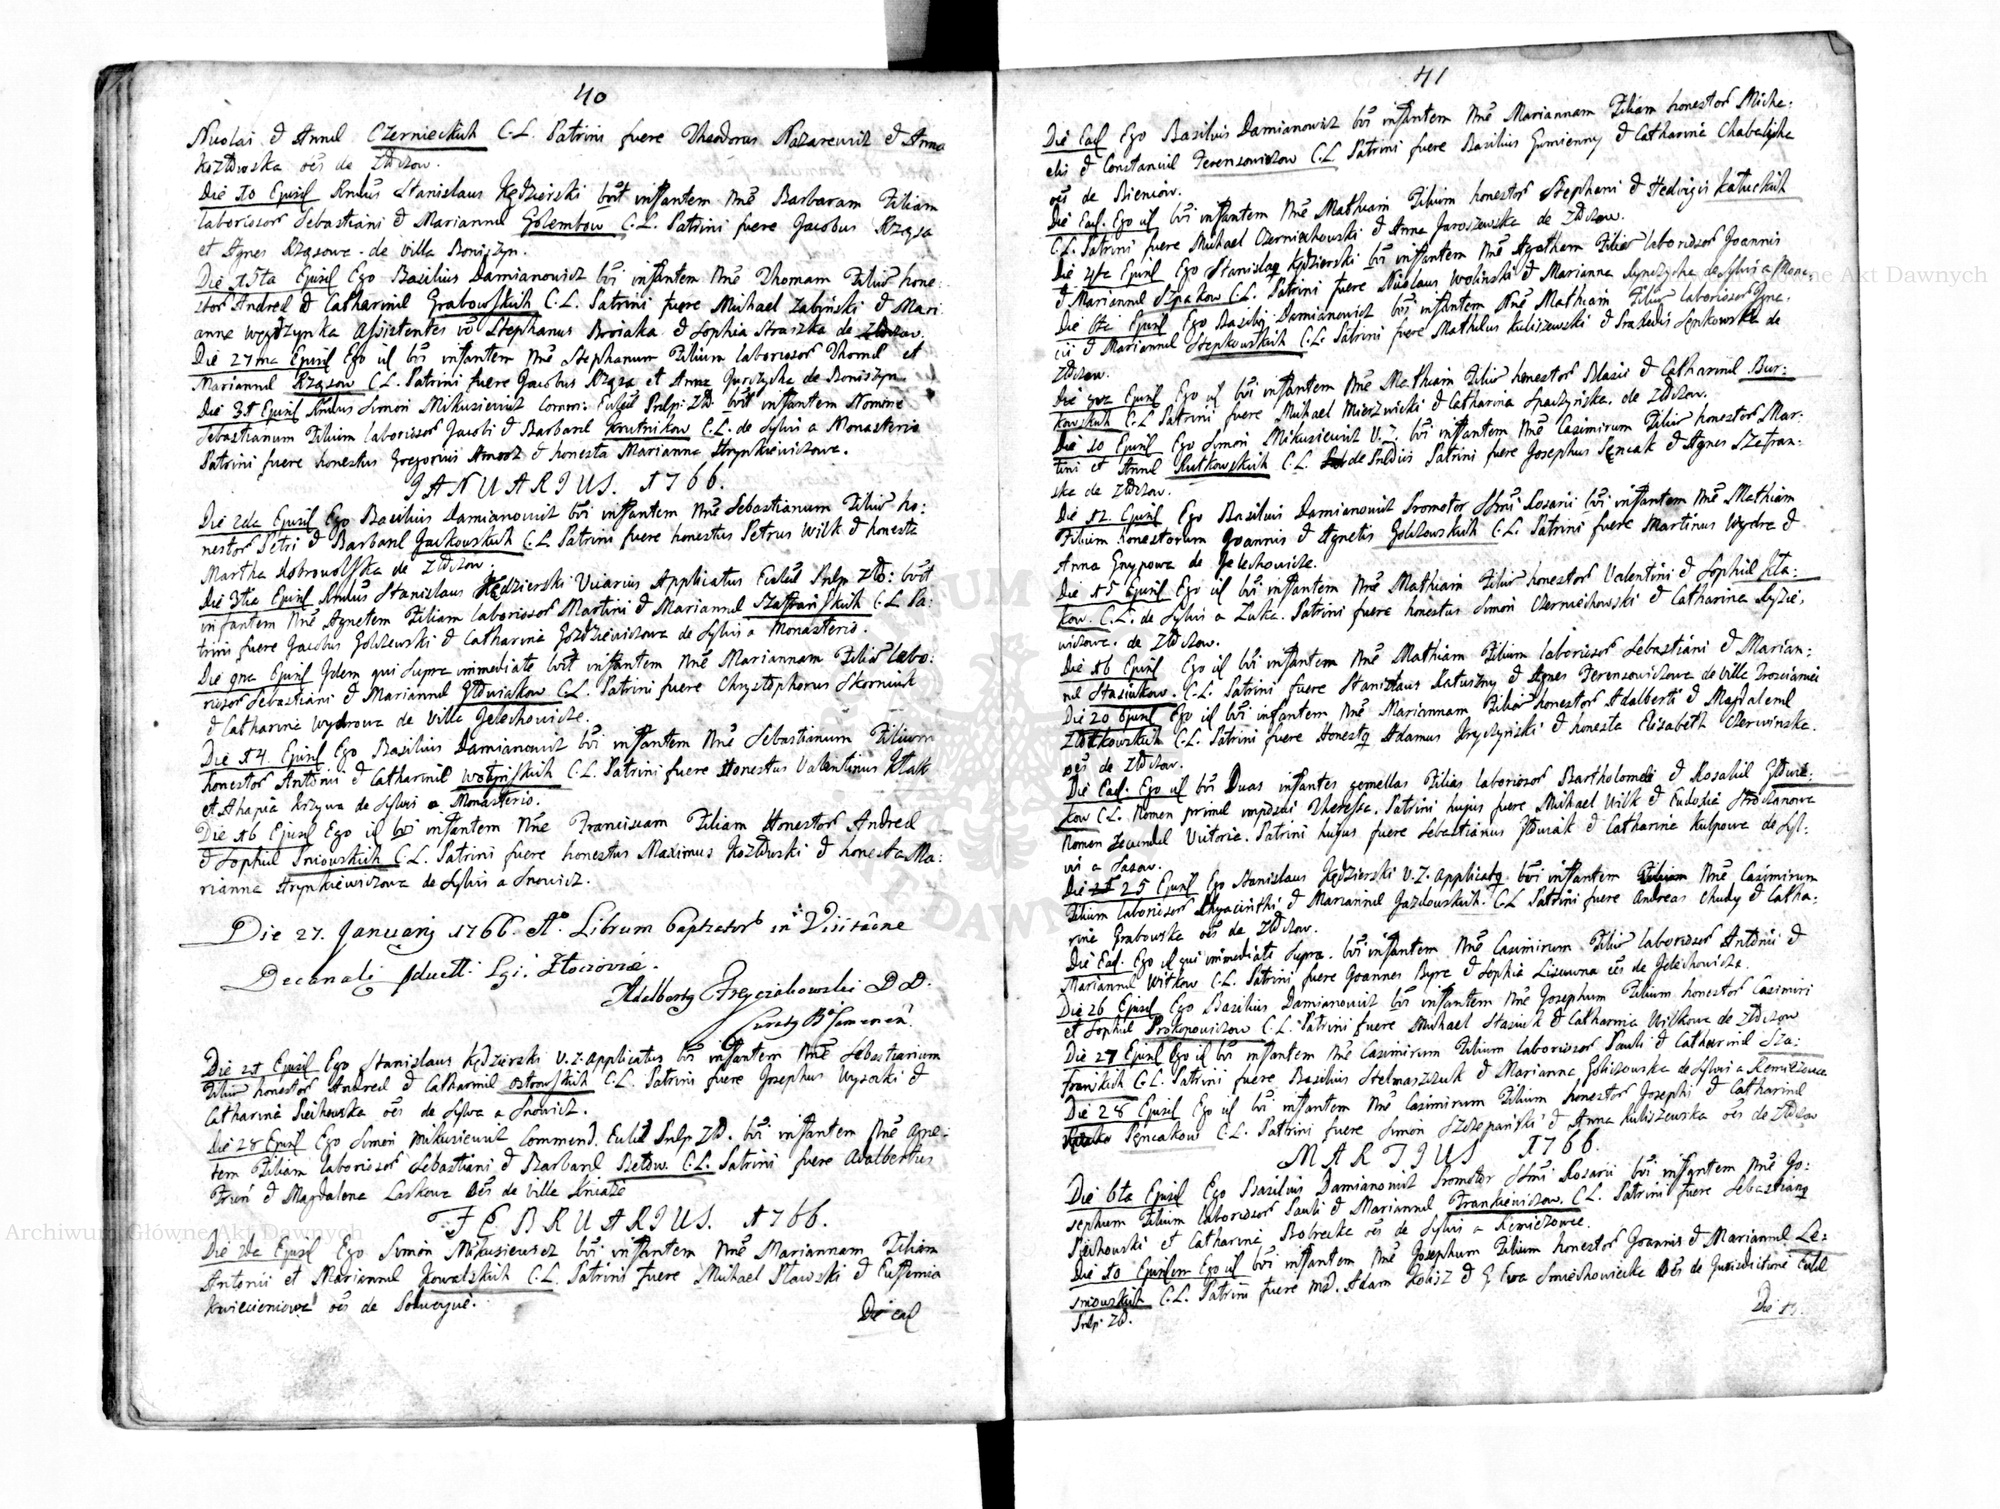 40
Nicolai & Annæ Czernieckich C.L. Patrini fuere Theodorus Nazarewicz & Anna
Kozłowska oēs de Złoczow.
Die 10 Ejusd Rndus Stanislaus Kędzierski bāt infantem Nnē Barbaram Filiam
laboriosor Sebastiani & Mariannæ Golembow C.L. Patrini fuere Jacobus Rząsa
et Agnes Rząsowa de villa Boniszyn.
Die 15ta Ejusd Ego Basilius Damianowicz bāi infantem Nnē Thomam Filiū hone:
stor Andreæ & Catharinæ Grabowskich C.L. Patrini fuere Michael Zabinski & Mari
anna Assistentes vō Stephanus & Sophia Straszka de Złoczow.
Die 27ma Ejusd Ego id bāi infantem Nnē Stephanum Filium laboriosor Thomæ et
Mariannæ Rząsow C.L. Patrini fuere Jacobus Rząsa et Anna de Boniszyn.
Die 31 Ejusd Rndus Simon Mikusiewicz Comm: Eccliæ Prlp: Zło. bāt infantem Nomine
Sebastianum Filium laboriosor Jacobi & Barbaræ Krutnikow C.L. de Sylvi a Monasterio
Patrini fuere honestus Gregorius & honesta Marianna Hrynkiewiczowa.
JANUARIUS. 1766.
Die 2da Ejusd Ego Basilius Damianowicz bāi infantem Nnē Sebastianum Filiū ho:
nestor Petri & Barbaræ Jackowskich C.L. Patrini fuere honestus Petrus Wilk & honesta
Martha Dobrowolska de Złoczow.
Die 3tia Ejusd Rndus Stanislaus Kędzierski Vicarius Applicatus Eccliæ Prlp: Zło: bāt
infantem Nnē Agnetem Filiam laboriosor Martini & Mariannæ Szafrańskich C.L. Pa:
trini fuere Jacobus Golczewski & Catharina Gozdziewiczowa de Sylvi a Monasterio.
Die 9na Ejusd Idem qui supra immediate bāt infantem Nnē Mariannam Filiā labo:
riosor Sebastiani & Mariannæ C.L. Patrini fuere Chrystophorus Skorniak
& Catharina Wydrowa de Villa Jelechowicze.
Die 14 Ejusd Ego Basilius Damianowicz bāi infantem Nnē Sebastianum Filium
honestor Antonii & Catharinæ Wołynskich C.L. Patrini fuere Honestus Valentinus Ktak
et Ahapia Krzywa de Sylvi a Monasterio.
Die 16 Ejusd Ego id bāi infantem Nnē Franciscam Filiam Honestor Andreæ
& Sophiæ Sniowskich C.L. Patrini fuere honestus Maximus Kozłowski & honesta Ma:
rianna Hrynkiewiczowa de Sylvi a Snowicz.
Die 27. Januarij 1766. Aō. Librum baptizatorū in Visitāone
Decanali Złoczoviæ.
Adalbertq D.D.
Die 21 Ejusd Ego Stanislaus Kędzierski V.Z. Applicatus bāi infantem Nnē Sebastianum
Filiū honestor Andreæ & Catharinæ Ostrowskich C.L. Patrini fuere Josephus Wysocki &
Catharina Piechowska oēs de Sylva a Snowicz.
Die 28 Ejusd Ego Simon Mikusiewicz Commend. Eccliæ Prlp. Zło. bāi infantem Nnē Agne:
tem Filiam laboriosor Sebastiani & Barbaræ C.L. Patrini fuere Adalbertus
& Magdalena Laskowa oēs de Villa Kniaże
FEBRUARIUS. 1766.
Die 2da Ejusd Ego Simon Mikusiewicz bāi infantem Nnē Mariannam Filiam
Antonii et Mariannæ Kowalskich C.L. Patrini fuere Michael Stawski & Euffemia
Kwiecieniowa oēs de
Die ead
41
Die Ead Ego Basilius Damianowicz bāi infantem Nnē Mariannam Filiam honestor Micha:
elis & Constanciæ Ferensowiczow C.L. Patrini fuere Basilius Gumienny & Catharina
oēs de Bieniow.
Die Ead. Ego id bāi infantem Nnē Mathiam Filium honestor Stephani & Hedvigis Katuckich
C.L. Patrini fuere Michael Czerniechowski & Anna Jaroszewska de Złoczow.
Die 4ta Ejusd Ego Stanislaq Kędzierski bāi infantem Nnē Agatham Filiā laboriosor Joannis
& Mariannæ Szpakow C.L. Patrini fuere Nicolaus Wolinski & Marianna de Sylvi a Mona.
Die 6ta Ejusd Ego Basilij Damianowicz bāi infantem Nnē Mathiam Filiū laboriosor Igna.
cii & Mariannæ Stepkowskich C.L. Patrini fuere Mathæus Kuliszewski & Praxedis Senkowska de
Złoczow.
Die 9na Ejusd Ego id bāi infantem Nnē Mathiam Filiū honestor Blasii & Catharinæ Bur:
kowskich C.L. Patrini fuere Michael Mierzwicki & Catharina Spaczyńska. de Złoczow.
Die 10 Ejusd Ego Simon Mikusiewicz V.Z. bāi infantem Nnē Casimirum Filiū honestor Mar:
tini et Annæ Rutkowskich C.L. de Patrini fuere Josephus & Agnes Szafran:
ska de Złoczow.
Die 12. Ejusd Ego Basilius Damianowicz Promotor SSmi Rosarii bāi infantem Nnē Mathiam
Filium honestorum Joannis & Agnetis Golczowskich C.L. Patrini fuere Martinus Wydra &
Anna Gnypowa de Jelechowicze.
Die 15 Ejusd Ego id bāi infantem Nnē Mathiam Filiū honestor Valentini & Sophiæ Kta:
kow. C.L. de Sylvi a Zuka. Patrini fuere honestus Simon Czerniechowski & Catharina
wiczowa. de Złoczow.
Die 16 Ejusd Ego id bāi infantem Nnē Mathiam Filium laboriosor Sebastiani & Marian:
næ Stasiukow. C.L. Patrini fuere Stanislaus & Agnes Ferensowiczowa de Villa
Die 20 Ejusd Ego id bāi infantem Nnē Mariannam Filiā honestor Adalberti & Magdalenæ
Złotkowskich C.L. Patrini fuere Honestq Adamus & honesta Elisabeth Czerwinska.
oēs de Złoczow.
Die Ead. Ego id bāi Duas infantes gemellas Filias laboriosor Bartholomæi & Rosaliæ
kow C.L. Nomen primæ imposui Theressa. Patrini hujus fuere Michael Wilk & Eudoxia
Nomen secundæ Victoria. Patrini hujus fuere Sebastianus & Catharina Kulpowa de Syl:
vi a Sasow.
Die 25 Ejusd Ego Stanislaus Kędzierski V.Z. Applicatq bāi infantem Nnē Casimirum
Filium laboriosor & Mariannæ Gazdowskich. C.L. Patrini fuere Andreas Chudy & Catha:
rina Grabowska oēs de Złoczow.
Die Ead. Ego id qui immediate supra. bāi infantem Nnē Casimirum Filiū laboriosor Antonii &
Mariannæ Witkow C.L. Patrini fuere Joannes Byra & Sophia oēs de Jelechowicze.
Die 26 Ejusd Ego Basilius Damianowicz bāi infantem Nnē Josephum Filium honestor Casimiri
et Sophiæ Prokopowiczow C.L. Patrini fuere Michael Stasiuk & Catharina Wilkowa de Złoczow
Die 27 Ejusd Ego id bāi infantem Nnē Casimirum Filium laboriosor Pauli & Catharinæ Sza:
franskich C.L. Patrini fuere Basilius Stelmaszczuk & Marianna Goliczowska de Sylvi a
Die 28 Ejusd Ego id bāi infantem Nnē Casimirum Filium honestor Josephi & Catharinæ
C.L. Patrini fuere Simon Szczepański & Anna Kuliszewska oēs de Złoczow
MARTIUS 1766.
Die 6ta Ejusd Ego Basilius Damianowicz Promotor SSmi Rosarii bāi infantem Nnē Jo:
sephum Filium laboriosor Pauli & Mariannæ Frankiewiczow. C.L. Patrini fuere Sebastianq
Piechowski et Catharina Bobrecka oēs de Sylvi a
Die 10 Ejusdem Ego id bāi infantem Nnē Josephum Filium honestor Joannis & Mariannæ Le:
sniowskich C.L. Patrini fuere Adam & Eva Smiechowiecka oēs de Jurisdictione Eccliæ
Prlp: Zło.
Die
Archiwum Główne Akt Dawnych